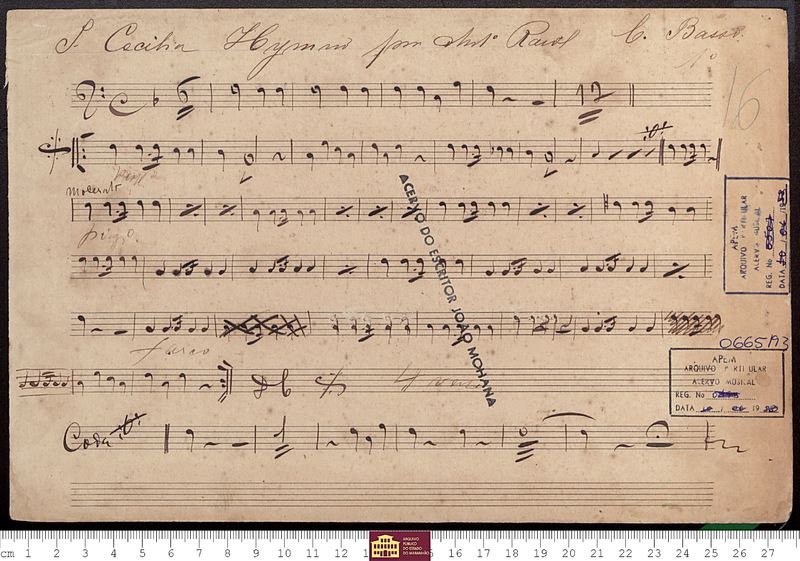 S. Cecilia Hymno por Ant.º Rayol C. Basso
1º
16
6
12
Moderato
ACERVO DO ESCRITOR JOÃO MOHANA
APEM
ARQUIVO PARTICULAR
ACERVO MUSICAL
REG. No
DATA
0665/93
APEM
ARQUIVO PARTICULAR
ACERVO MUSICAL
REG. No
DATA 19
DC
Coda
cm 1 2 3 4 5 6 7 8 9 10 11 12 15 16 17 18 19 20 21 22 23 24 25 26 27
ARQUIVO
PÚBLICO
DO ESTADO
DO MARANHÃO